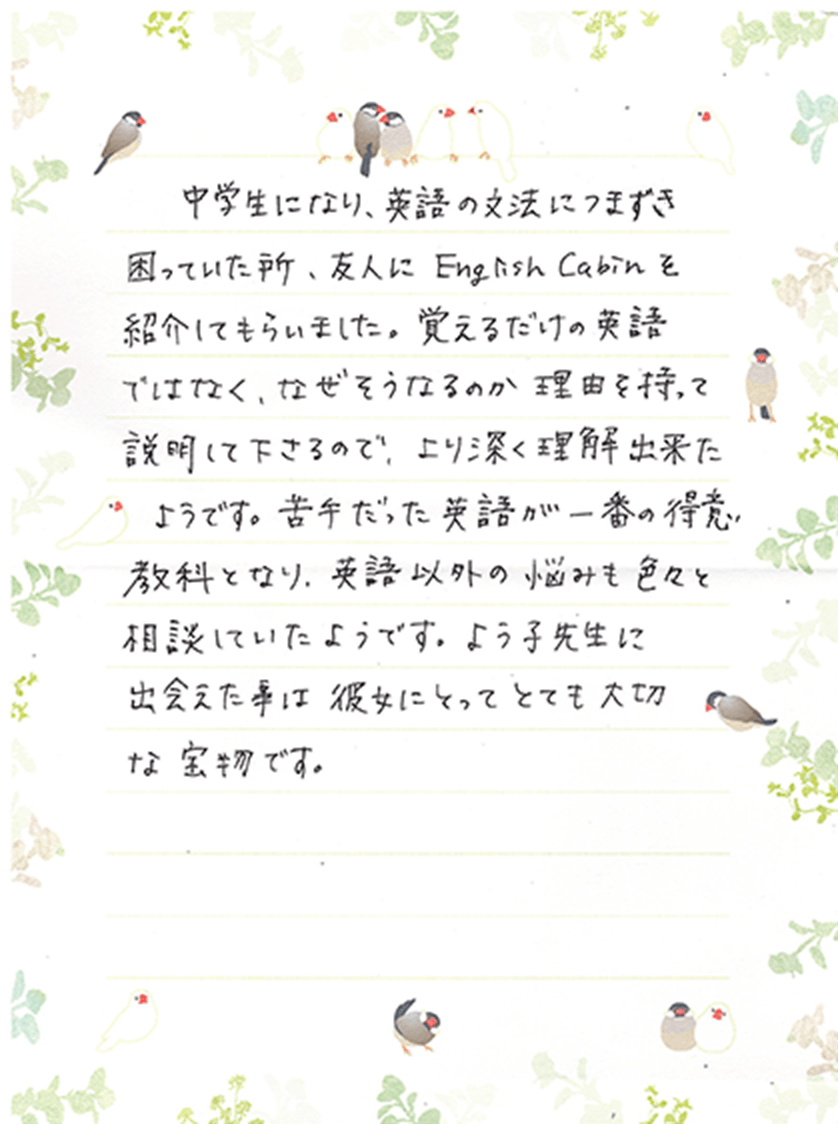 中学生になり、英語の文法につまずき
困っていた所、友人に English Cabin を
紹介してもらいました。覚えるだけの英語
ではなく、なぜそうなるのか 理由を持って
説明して下さるので、より深く理解出来た
ようです。苦手だった英語が一番の得意
教科となり、英語以外の悩みも色々と
相談していたようです。よう子先生に
出会えた事は 彼女にとってとても大切
な宝物です。